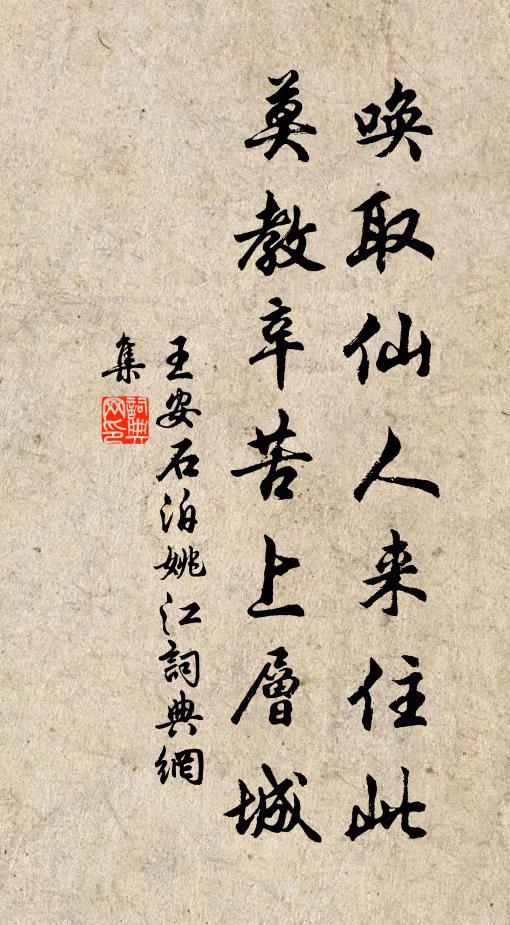 唤取仙人来住此
莫教辛苦上層城
王安石泊姚江詞典網
集
詞典網印